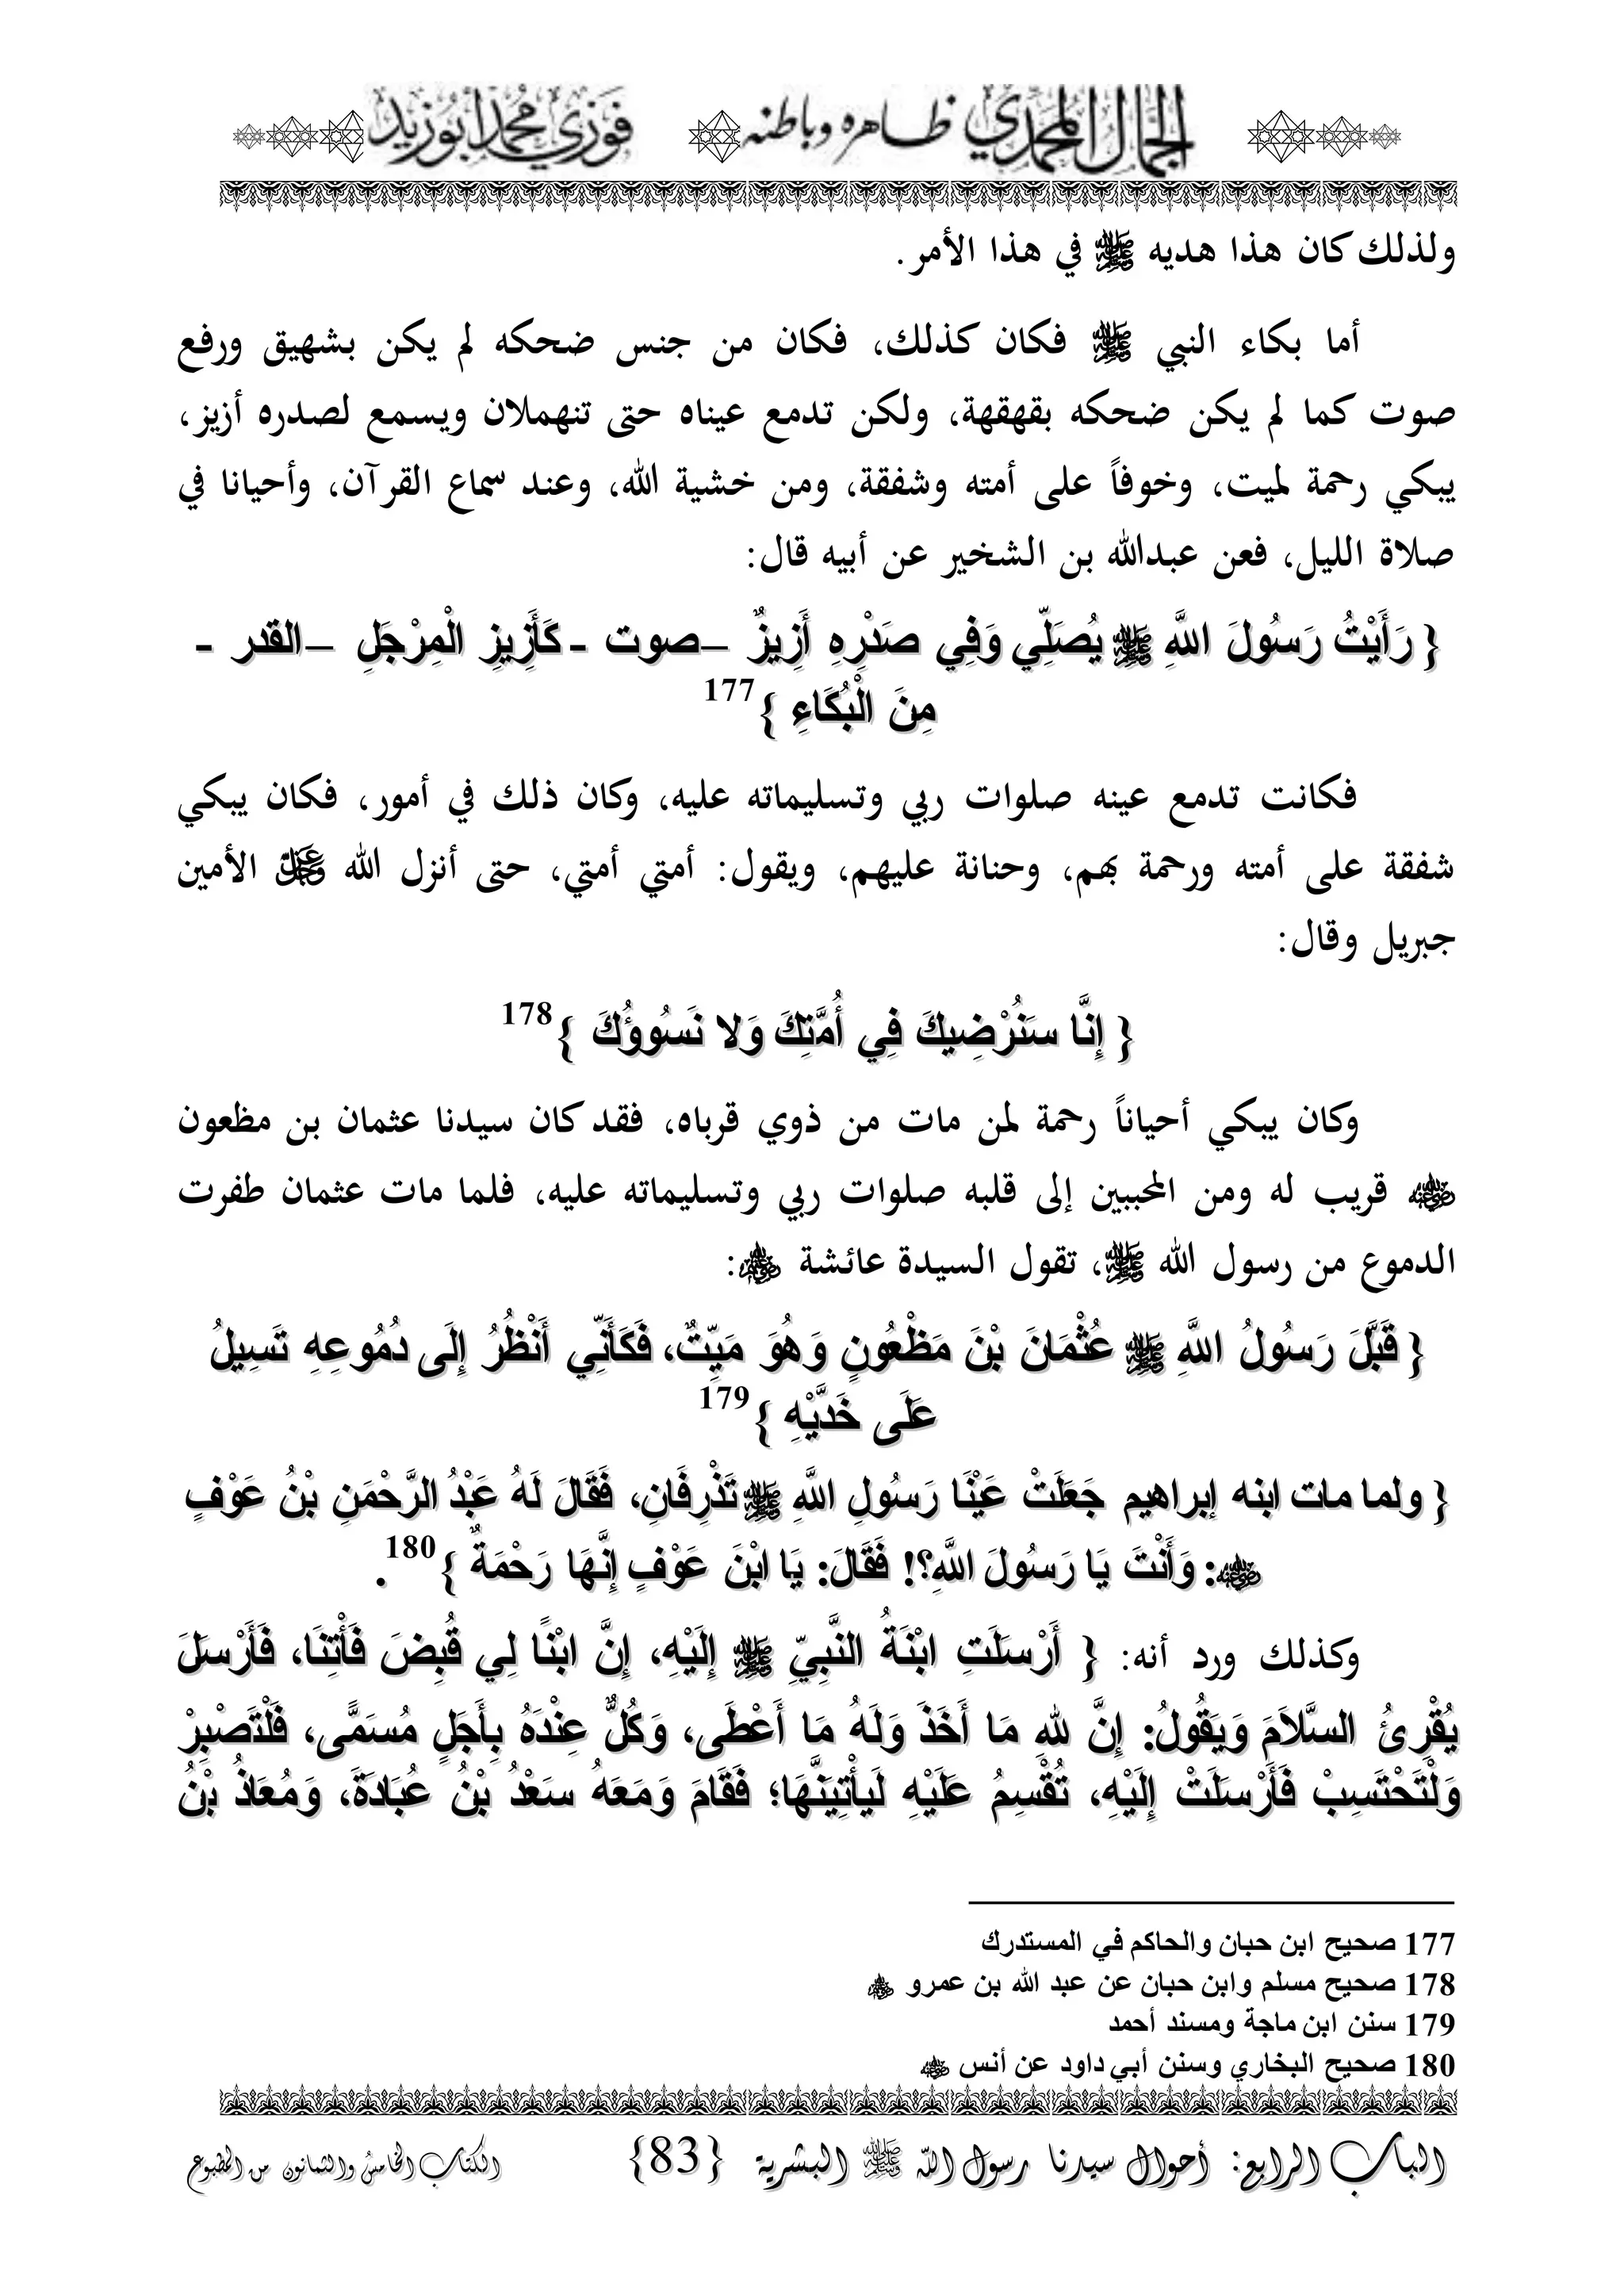 الجمال المحمدي ظاهره وباطنه فوزي محمد أبو زيد
ولذلك كان هذا هديه ﷺ في هذا الأمر.
أما بكاء النبي ﷺ فكان كذلك، فكان من جنس ضحكه لم يكن بشهيق ورفع
صوت كما لم يكن ضحكه بقهقهة، ولكن تدمع عيناه حتى تنهملان ويسمع لصدره أزيز،
يبكي رحمة لميت، وخوفاً على أمته وشفقة، ومن خشية الله، وعند سماع القرآن، وأحيانا في
صلاة الليل، فعن عبدالله بن الشخير عن أبيه قال:
{ رَأَيْتُ رَسُولَ اللَّهِ ﷺ يُصَلِّي وَفِي صَدْرِهِ أَزِيزٌ – صوت - كَأَزِيزِ الْمِرْجَلِ – القدر -
مِنَ الْبُكَاءِ }177
فكانت تدمع عينه صلوات ربي وتسليماته عليه، وكان ذلك في أمور، فكان يبكي
شفقة على أمته ورحمة بهم، وحنانة عليهم، ويقول: أمتي أمتي، حتى أنزل الله عز وجل الأمين
جبريل وقال:
{ إِنَّا سَنُرْضِيكَ فِي أُمَّتِكَ وَلا نَسُووُكَ }178
وكان يبكي أحياناً رحمة لمن مات من ذوي قرباه، فقد كان سيدنا عثمان بن مظعون
رضي الله عنه قريب له ومن المحببين إلى قلبه صلوات ربي وتسليماته عليه، فلما مات عثمان طفرت
الدموع من رسول الله ﷺ، تقول السيدة عائشة رضي الله عنها:
{ قَبَّلَ رَسُولُ اللَّهِ ﷺ عُثْمَانَ بْنَ مَظْعُونٍ وَهُوَ مَيِّتٌ، فَكَأَنِّي أَنْظُرُ إِلَى دُمُوعِهِ تَسِيلُ
عَلَى خَدَّيْهِ }179
{ ولما مات ابنه إبراهيم جَعَلَتْ عَيْنَا رَسُولِ اللَّهِ ﷺ تَذْرِفَانِ، فَقَالَ لَهُ عَبْدُ الرَّحْمَنِ بْنُ عَوْفٍ
رضي الله عنه: وَأَنْتَ يَا رَسُولَ اللَّهِ؟! فَقَالَ: يَا ابْنَ عَوْفٍ إِنَّهَا رَحْمَةٌ }180.
وكذلك ورد أنه: { أَرْسَلَتِ ابْنَةُ النَّبِيِّ ﷺ إِلَيْهِ، إِنَّ ابْنًا لِي قُبِضَ فَأْتِنَا، فَأَرْسَلَ
يُقْرِئُ السَّلاَمَ وَيَقُولُ: إِنَّ لِلهِ مَا أَخَذَ وَلَهُ مَا أَعْطَى، وَكُلٌّ عِنْدَهُ بِأَجَلٍ مُسَمًّى، فَلْتَصْبِرْ
وَلْتَحْتَسِبْ فَأَرْسَلَتْ إِلَيْهِ، تُقْسِمُ عَلَيْهِ لَيأْتِيَنَّهَا؛ فَقَامَ وَمَعَهُ سَعْدُ بْنُ عُبَادَةَ، وَمُعَاذُ بْنُ
177 صحيح ابن حبان والحاكم في المستدرك
178 صحيح مسلم وابن حبان عن عبد الله بن عمرو رضي الله عنه
179 سنن ابن ماجة ومسند أحمد
180 صحيح البخاري وسنن أبي داود عن أنس رضي الله عنه
الباب الرابع: أحوال سيدنا رسول الله ﷺ البشرية {83} الكتاب الخامس والثمانون من المطبوع